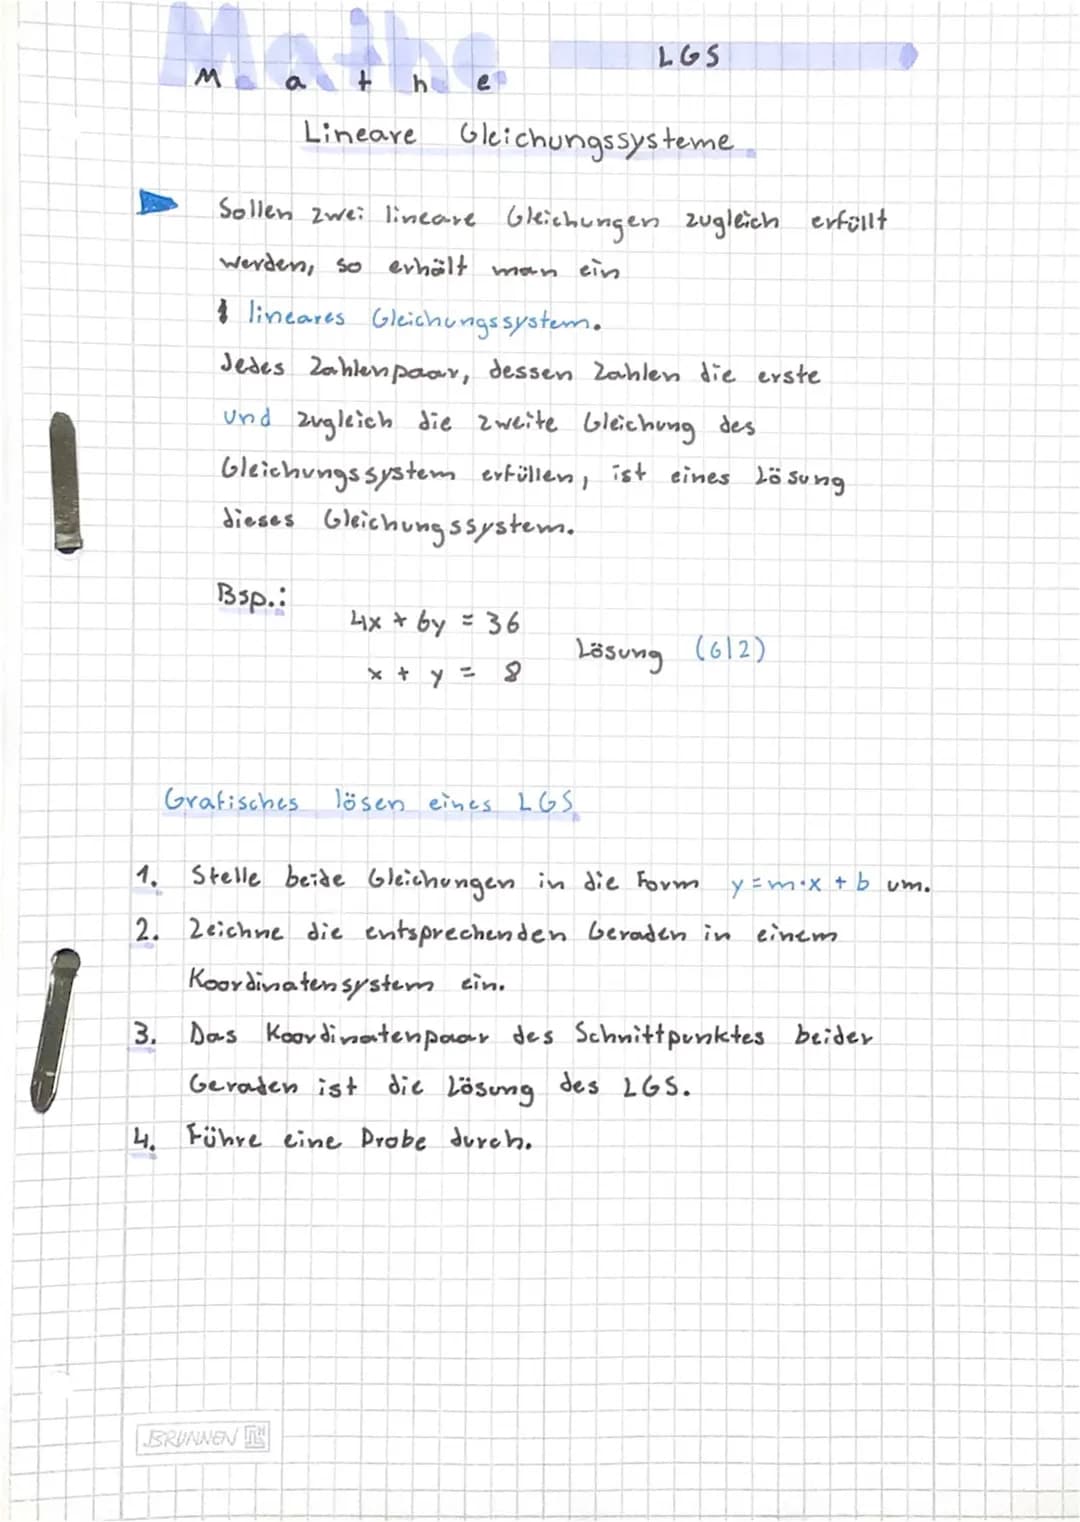 Mathe
M a t h e
LGS
Lineare Gleichungssysteme
Sollen zwei lineare Gleichungen zugleich erfüllt
werden, so erhält man ein
lineares Gleichungssystem.
Jedes Zahlenpaar, dessen Zahlen die erste
und zugleich die zweite Gleichung des
Gleichungssystem erfüllen, ist eines Lösung
dieses Gleichungssystem.
Bsp.:
4x + 6y = 36
Lösung (6|2)
x + y = 8
Grafisches lösen eines LGS
1. Stelle beide Gleichungen in die Form y=m·x + b um.
2. Zeichne die entsprechenden Geraden in einem
Koordinatensystem ein.
3. Das Koordinatenpaar des Schnittpunktes beider
Geraden ist die Lösung des LGS.
4. Führe eine Probe durch.
BRUNNEN